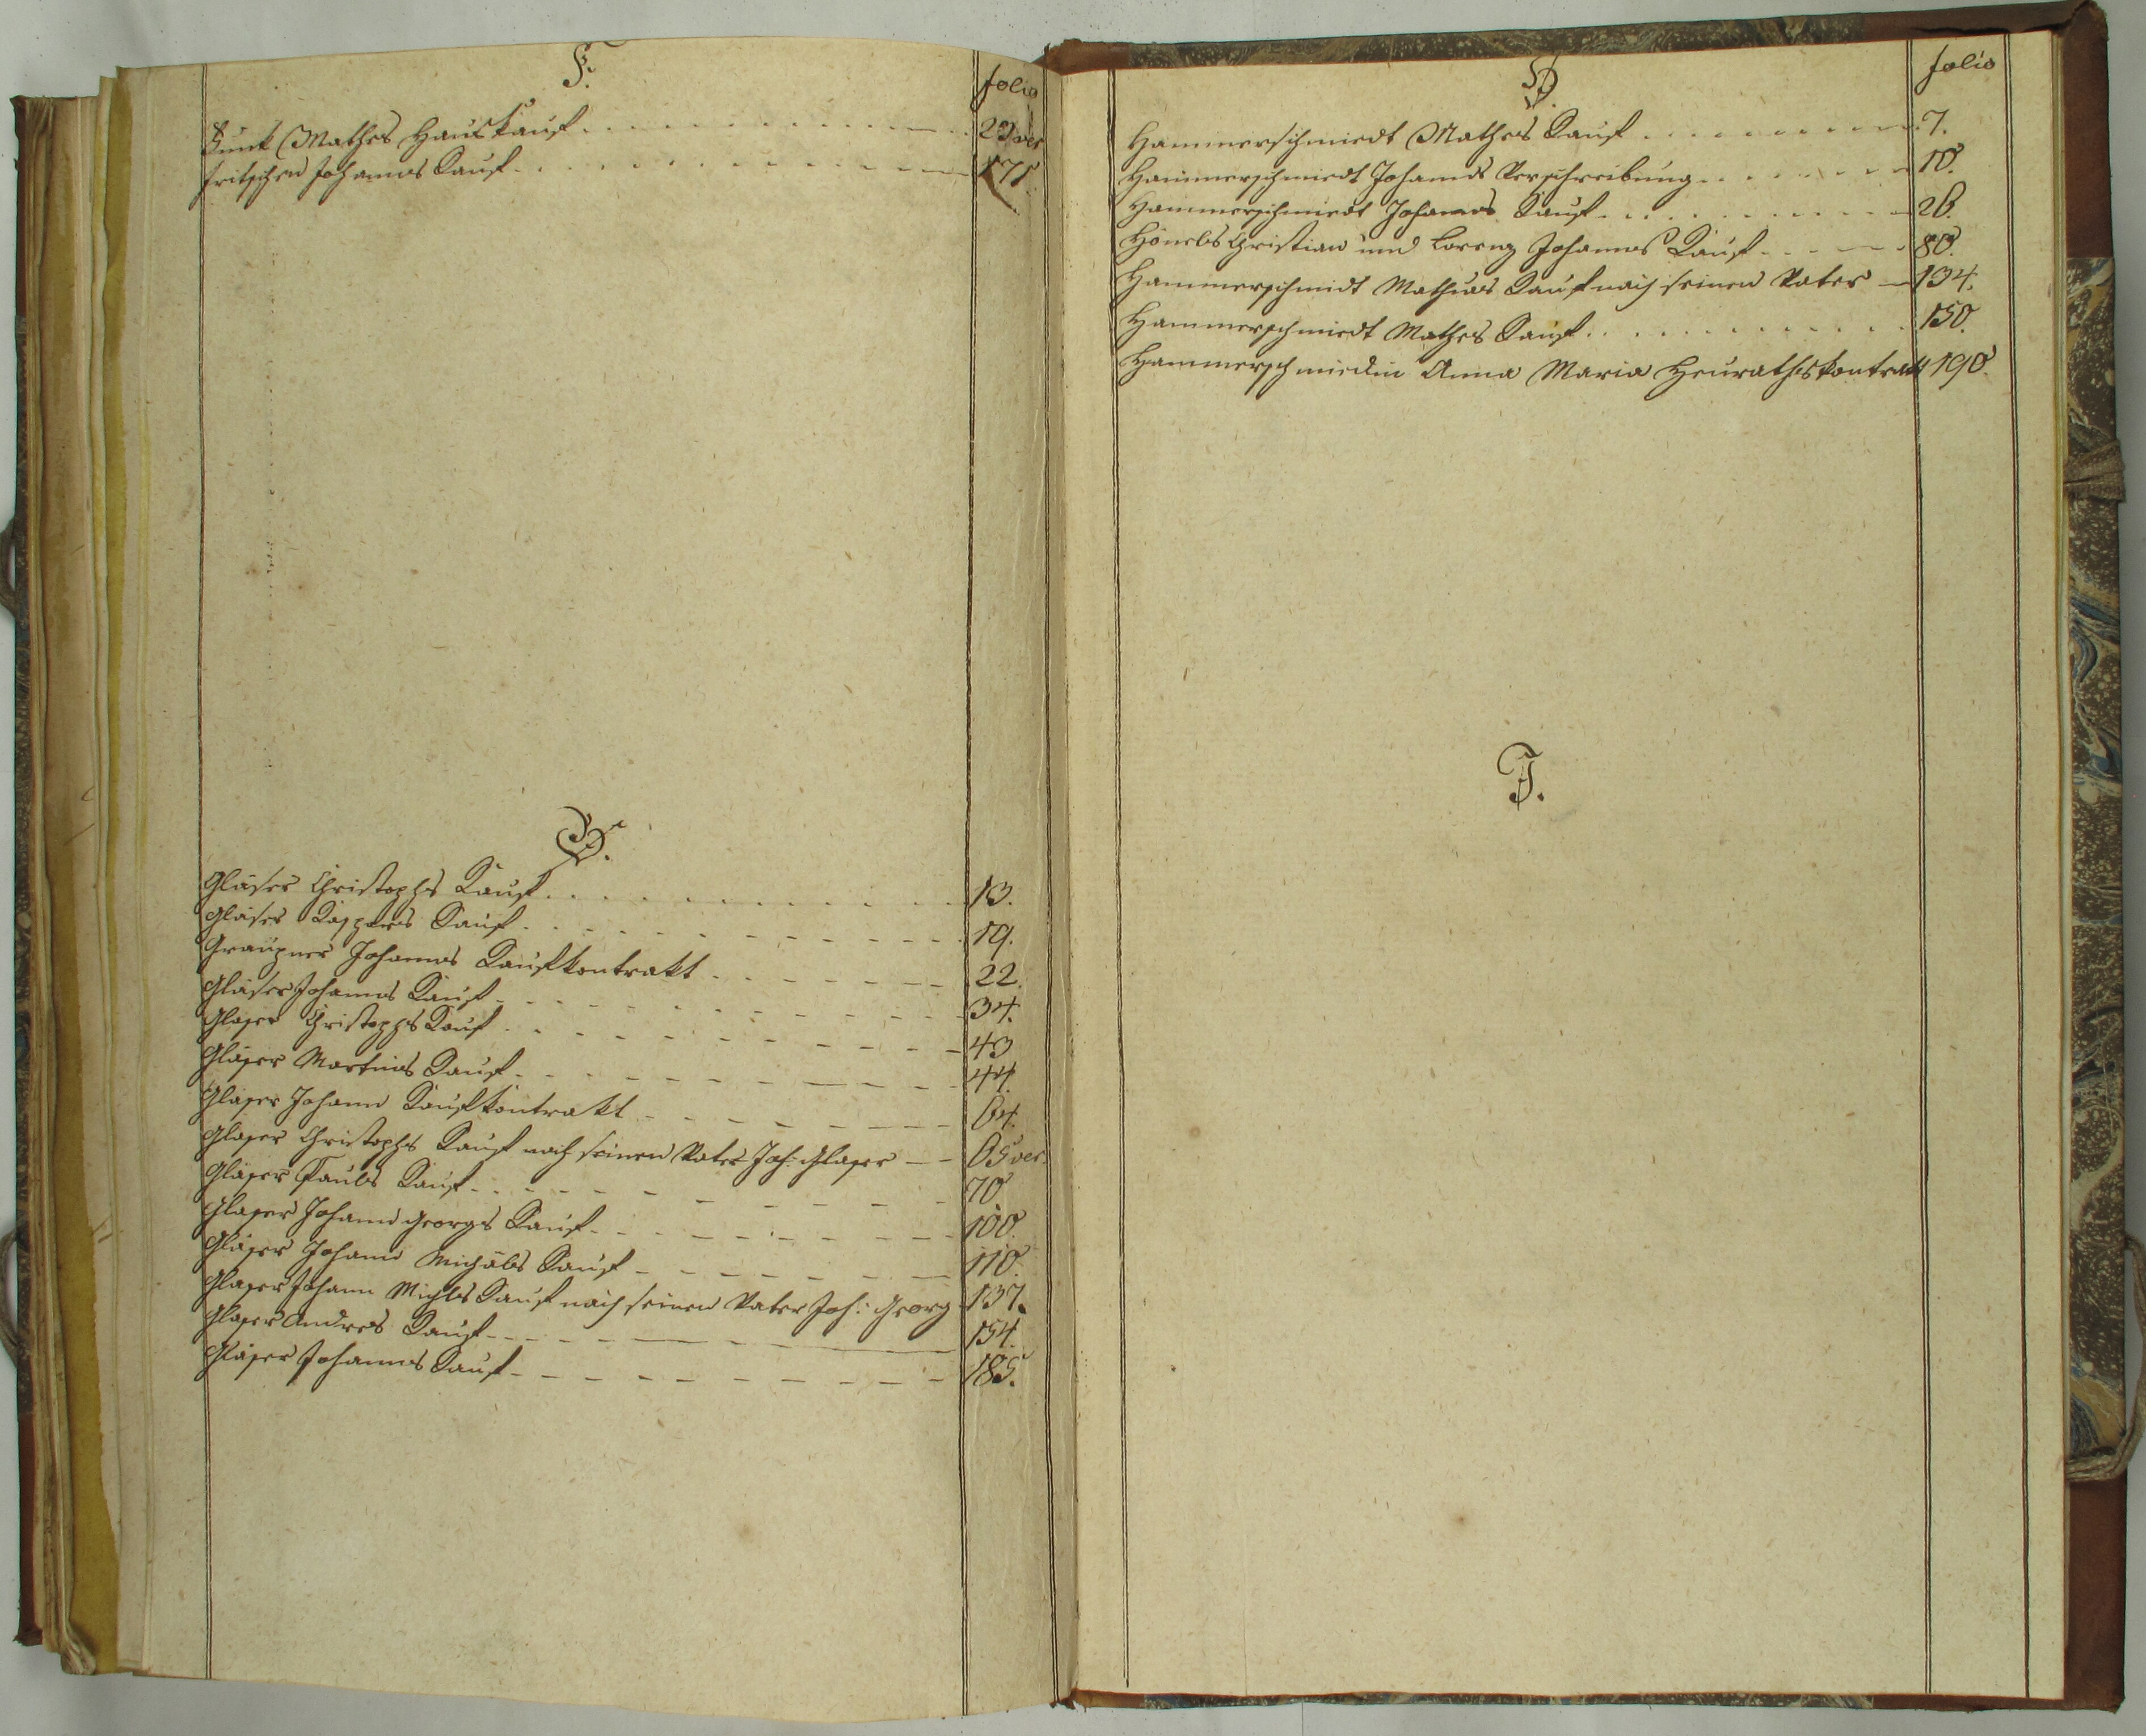 F.
folio
Funk Mathes Hauskauf 29 ver
Fritschen Johannes Kauf 171.
G.
Gläser Christophs Kauf 13.
Gläser Kaspars Kauf 19.
Graupner Johannes Kaufkontrakt 22.
Gläser Johannes Kauf 34.
Glaser Christophs Kauf 43
Gläser Martins Kauf 44.
Glaser Johann Kaufkontrakt 64.
Glaser Christophs Kauf nach seinen Vater Joh: Glaser 65 ver.
Gläser Pauls Kauf 70
Glaser Johann Georgs Kauf 100.
Gläser Johann Michäls Kauf 110.
Glaser Johann Michls Kauf nach seinen Vater Joh: Georg 137.
Glaser Andres Kauf 154.
Gläser Johannes Kauf 185.
H.
folio
Hammerschmiedt Mathes Kauf 7.
Hammerschmiedt Johannes Verschreibung 10.
Hammerschmiedt Johannes Kauf 26.
Hönels Christian und Lorenz Johannes Kauf 80.
Hammerschmidt Mathias Kauf nach seinen Vater 134.
Hammerschmiedt Mathes Kauf 150.
Hammerschmiedin Anna Maria Heurathskontrakt 190.
J.